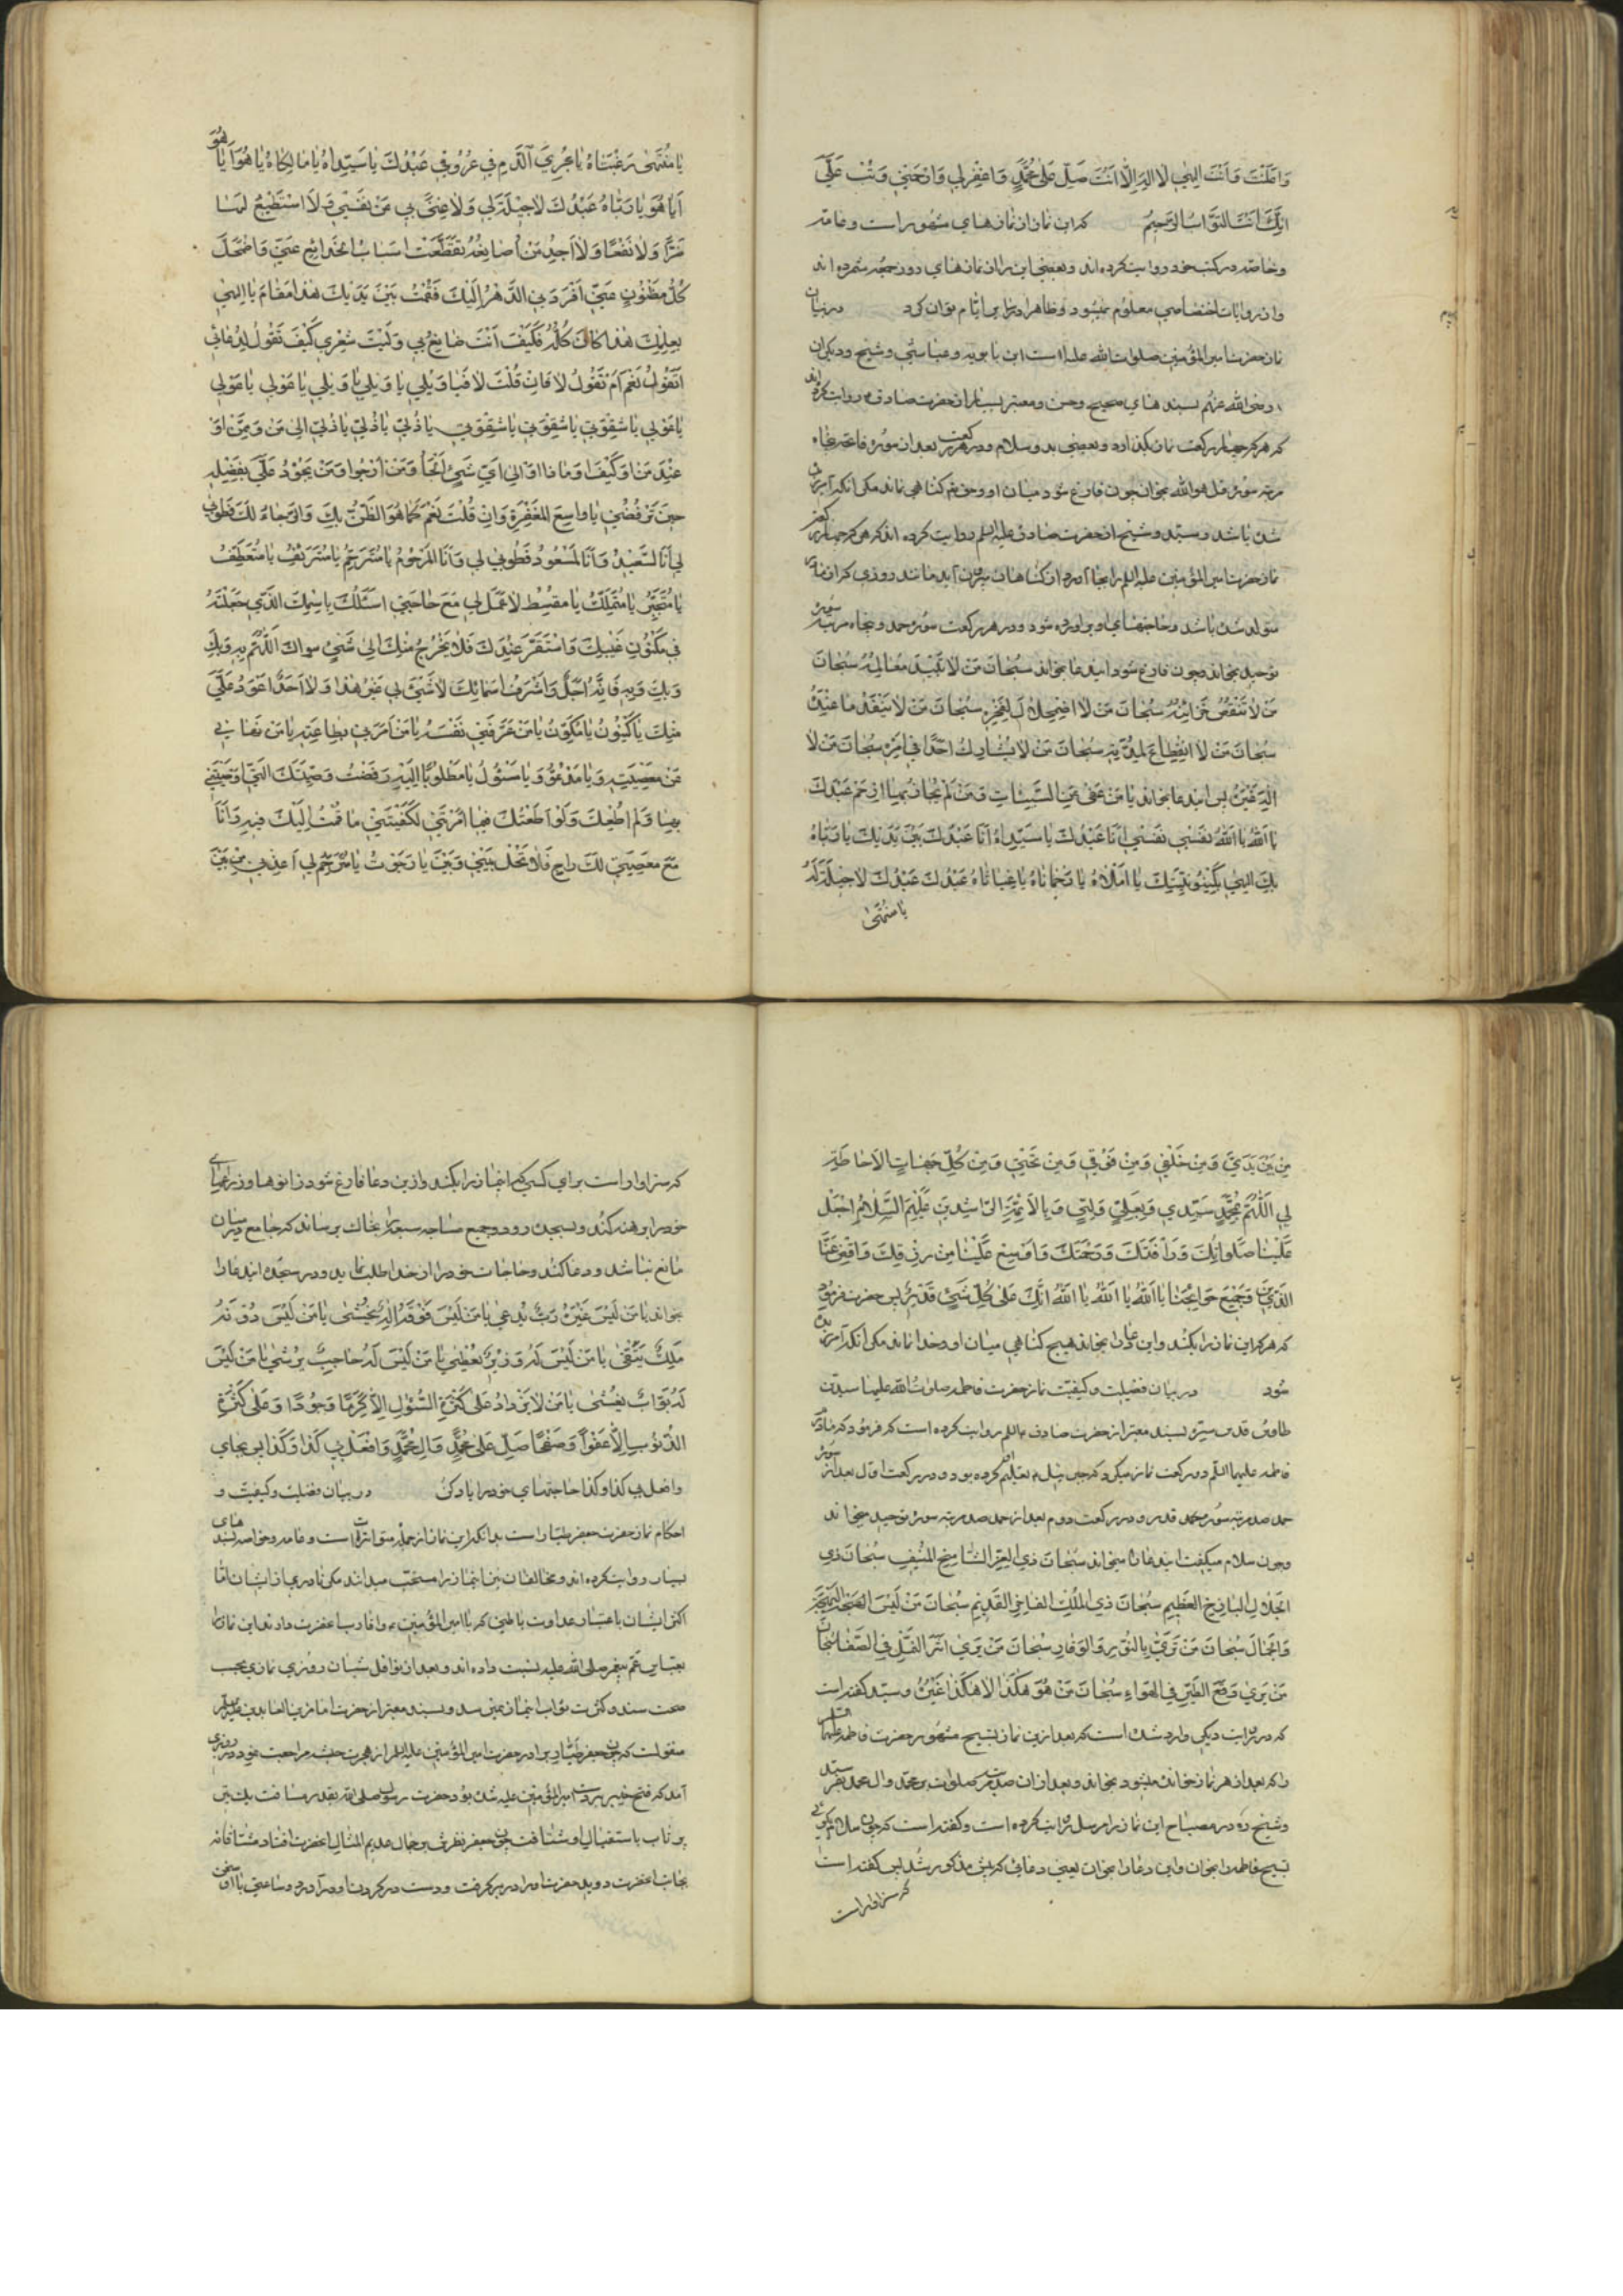 وَاَعْلَنْتَ وَاَنْتَ اِلٰهِي لَا اِلٰهَ اِلَّا اَنْتَ صَلِّ عَلٰى مُحَمَّدٍ وَاغْفِرْ لِي وَارْحَمْنِي وَتُبْ عَلَيَّ
اِنَّكَ اَنْتَ التَّوَّابُ الرَّحِيمُ كه اين نماز از نمازهاي مشهور است و عامه
و خاصه در كتب خود روايت كرده اند و بعضي اين را از نمازهاي روز جمعه شمرده اند
و از روايات اختصاصي معلوم نميشود و ظاهرا در ساير ايام توان كرد در بيان
نماز حضرت امير المؤمنين صلوات الله عليه است ابن بابويه و عياشي و شيخ و ديكران
رضي الله عنهم بسندهاي صحيح و حسن و معتبر بسيار از حضرت صادق روايت كرده اند
كه هر كه چهار ركعت نماز بكذارد و بعضي بدو سلام و در هر ركعت بعد از سوره فاتحه پنجاه
مرتبه سوره قل هو الله بخواند چون فارغ شود ميان او و حق تعالى كناهي نماند مكر آنكه آمرزيده
شده باشد و سيد و شيخ از حضرت صادق عليه السلم روايت كرده اند كه هر كه چهار ركعت
نماز حضرت امير المؤمنين عليه السلم را بجا آورد از كناهان بيرون آيد مانند روزي كه از مادر
متولد شده باشد و حاجتهاي او برآورده شود و در هر ركعت سوره حمد و پنجاه مرتبه سوره
توحيد بخواند و چون فارغ شود اين دعا بخواند سُبْحَانَ مَنْ لَا تَبِيدُ مَعَالِمُهُ سُبْحَانَ
مَنْ لَا تَنْقُصُ خَزَائِنُهُ سُبْحَانَ مَنْ لَا اضْمِحْلَالَ لِفَخْرِهِ سُبْحَانَ مَنْ لَا يَنْفَدُ مَا عِنْدَهُ
سُبْحَانَ مَنْ لَا انْقِطَاعَ لِمُدَّتِهِ سُبْحَانَ مَنْ لَا يُشَارِكُ اَحَدًا فِي اَمْرِهِ سُبْحَانَ مَنْ لَا
اِلٰهَ غَيْرُهُ پس اين دعا بخواند يَا مَنْ عَفَى عَنِ السَّيِّئَاتِ وَمَنْ لَمْ يُجَازِ بِهَا ارْحَمْ عَبْدَكَ
يَا اَللّٰهُ يَا اَللّٰهُ نَفْسِي نَفْسِي اَنَا عَبْدُكَ يَا سَيِّدَاهُ اَنَا عَبْدُكَ بَيْنَ يَدَيْكَ يَا رَبَّاهُ
بِكَ اِلٰهِي بِكَيْنُونَتِكَ يَا اَمَلَاهُ يَا رَحْمَانَاهُ يَا غِيَاثَاهُ عَبْدُكَ عَبْدُكَ لَا حِيلَةَ لَهُ
يا منتهى
يَا مُنْتَهٰى رَغْبَتَاهُ يَا مُجْرِيَ الدَّمِ فِي عُرُوقِ عَبْدِكَ يَا سَيِّدَاهُ يَا مَالِكَاهُ يَا هُوَ اَيَا هُوَ
اَيَا هُوَ يَا رَبَّاهُ عَبْدُكَ لَا حِيلَةَ لِي وَلَا غِنًى بِي عَنْ نَفْسِي وَلَا اَسْتَطِيعُ لَهَا
ضَرًّا وَلَا نَفْعًا وَلَا اَجِدُ مَنْ اُصَانِعُهُ تَقَطَّعَتْ اَسْبَابُ الْخَدَائِعِ عَنِّي وَاضْمَحَلَّ
كُلُّ مَظْنُونٍ عَنِّي اَفْرَدَنِي الدَّهْرُ اِلَيْكَ فَقُمْتُ بَيْنَ يَدَيْكَ هٰذَا الْمَقَامَ يَا اِلٰهِي
بِعِلْمِكَ هٰذَا كَانَ كُلُّهُ فَكَيْفَ اَنْتَ صَانِعٌ بِي وَلَيْتَ شِعْرِي كَيْفَ تَقُولُ لِدُعَائِي
اَتَقُولُ نَعَمْ اَمْ تَقُولُ لَا فَاِنْ قُلْتَ لَا فَيَا وَيْلِي يَا وَيْلِي يَا وَيْلِي يَا عَوْلِي يَا عَوْلِي
يَا عَوْلِي يَا شِقْوَتِي يَا شِقْوَتِي يَا شِقْوَتِي يَا ذُلِّي يَا ذُلِّي يَا ذُلِّي اِلٰى مَنْ وَمِمَّنْ اَوْ
عِنْدَ مَنْ اَوْ كَيْفَ اَوْ مَاذَا اَوْ اِلٰى اَيِّ شَيْءٍ اَلْجَأُ وَمَنْ اَرْجُو وَمَنْ يَجُودُ عَلَيَّ بِفَضْلِهِ
حِينَ تَرْفُضُنِي يَا وَاسِعَ الْمَغْفِرَةِ وَاِنْ قُلْتَ نَعَمْ كَمَا هُوَ الظَّنُّ بِكَ وَالرَّجَاءُ لَكَ فَطُوبٰى
لِي اَنَا السَّعِيدُ وَاَنَا الْمَسْعُودُ فَطُوبٰى لِي وَاَنَا الْمَرْحُومُ يَا مُتَرَحِّمُ يَا مُتَرَئِّفُ يَا مُتَعَطِّفُ
يَا مُتَجَبِّرُ يَا مُتَمَلِّكُ يَا مُقْسِطُ لَا عَمَلَ لِي مَعَ حَاجَتِي اَسْئَلُكَ بِاسْمِكَ الَّذِي جَعَلْتَهُ
فِي مَكْنُونِ غَيْبِكَ وَاسْتَقَرَّ عِنْدَكَ فَلَا يَخْرُجُ مِنْكَ اِلٰى شَيْءٍ سِوَاكَ اَللّٰهُمَّ بِهِ وَبِكَ
وَبِكَ وَبِهِ فَاِنَّهُ اَجَلُّ وَاَشْرَفُ اَسْمَائِكَ لَا شَيْءَ لِي غَيْرُ هٰذَا وَلَا اَحَدَ اَعْوَدُ عَلَيَّ
مِنْكَ يَا كَيْنُونُ يَا مُكَوِّنُ يَا مَنْ عَرَّفَنِي نَفْسَهُ يَا مَنْ اَمَرَنِي بِطَاعَتِهِ يَا مَنْ نَهَانِي
عَنْ مَعْصِيَتِهِ وَيَا مَدْعُوُّ وَيَا مَسْئُولُ يَا مَطْلُوبًا اِلَيْهِ رَفَضْتُ وَصِيَّتَكَ الَّتِي اَوْصَيْتَنِي
بِهَا وَلَمْ اُطِعْكَ وَلَوْ اَطَعْتُكَ فِيمَا اَمَرْتَنِي لَكَفَيْتَنِي مَا قُمْتُ اِلَيْكَ فِيهِ وَاَنَا
مَعَ مَعْصِيَتِي لَكَ رَاجٍ فَلَا تَحُلْ بَيْنِي وَبَيْنَ مَا رَجَوْتُ يَا مُتَرَحِّمُ لِي اَعِذْنِي مِنْ بَيْنِ
مِنْ بَيْنِ يَدَيَّ وَمِنْ خَلْفِي وَمِنْ فَوْقِي وَمِنْ تَحْتِي وَمِنْ كُلِّ جِهَاتِ الْاِحَاطَةِ
بِي اَللّٰهُمَّ بِمُحَمَّدٍ سَيِّدِي وَبِعَلِيٍّ وَلِيِّي وَبِالْاَئِمَّةِ الرَّاشِدِينَ عَلَيْهِمُ السَّلَامُ اجْعَلْ
عَلَيْنَا صَلَوَاتِكَ وَرَأْفَتَكَ وَرَحْمَتَكَ وَاَوْسِعْ عَلَيْنَا مِنْ رِزْقِكَ وَاقْضِ عَنَّا
الدَّيْنَ وَجَمِيعَ حَوَائِجِنَا يَا اَللّٰهُ يَا اَللّٰهُ يَا اَللّٰهُ اِنَّكَ عَلٰى كُلِّ شَيْءٍ قَدِيرٌ پس حضرت فرمود
كه هر كه اين نماز را بكند و اين دعا را بخواند هيچ كناهي ميان او و خدا نماند مكر آنكه آمرزيده
شود در بيان فضيلت و كيفيت نماز حضرت فاطمه صلوات الله عليها سيد بن
طاوس قدس سره بسند معتبر از حضرت صادق عليه السلم روايت كرده است كه فرمود كه مادرم
فاطمه عليها السلم دو ركعت نماز ميكرد كه جبرئيل تعليم كرده بود و در ركعت اول بعد از سوره
حمد صد مرتبه سوره قدر و در ركعت دوم بعد از حمد صد مرتبه سوره توحيد ميخواند
و چون سلام ميكفت اين دعا ميخواند سُبْحَانَ ذِي الْعِزِّ الشَّامِخِ الْمُنِيفِ سُبْحَانَ ذِي
الْجَلَالِ الْبَاذِخِ الْعَظِيمِ سُبْحَانَ ذِي الْمُلْكِ الْفَاخِرِ الْقَدِيمِ سُبْحَانَ مَنْ لَبِسَ الْبَهْجَةَ
وَالْجَمَالَ سُبْحَانَ مَنْ تَرَدّٰى بِالنُّورِ وَالْوَقَارِ سُبْحَانَ مَنْ يَرٰى اَثَرَ النَّمْلِ فِي الصَّفَا سُبْحَانَ
مَنْ يَرٰى وَقْعَ الطَّيْرِ فِي الْهَوَاءِ سُبْحَانَ مَنْ هُوَ هٰكَذَا لَا هٰكَذَا غَيْرُهُ و سيد كفته است
كه در روايت ديكر وارد شده است كه بعد از اين نماز تسبيح مشهور حضرت فاطمه عليها السلام
را كه بعد از هر نماز خوانده ميشود بخواند و بعد از آن صد مرتبه صلوات بر محمد و آل محمد بفرستد
و شيخ ره در مصباح اين نماز را مرسل روايت كرده است و كفته است كه چون سلام بكوئي
تسبيح فاطمه را بخوان و اين دعا را بخوان يعني دعائي كه پيش مذكور شد پس كفته است
كه سزاوار است
كه سزاوار است براي كسي كه اين نماز را بكند و از اين دعا فارغ شود زانوها و ذراعهاي
خود را برهنه كند و بسجده رود و جميع مساجد سبعه را بخاك برساند كه جامع در ميان
مانع نباشد و دعا كند و حاجات خود را از خدا طلب نمايد و در سجده اين دعا را
بخواند يَا مَنْ لَيْسَ غَيْرَهُ رَبٌّ يُدْعٰى يَا مَنْ لَيْسَ فَوْقَهُ اِلٰهٌ يُخْشٰى يَا مَنْ لَيْسَ دُونَهُ
مَلِكٌ يُتَّقٰى يَا مَنْ لَيْسَ لَهُ وَزِيرٌ يُعْطٰى يَا مَنْ لَيْسَ لَهُ حَاجِبٌ يُرْشٰى يَا مَنْ لَيْسَ
لَهُ بَوَّابٌ يُغْشٰى يَا مَنْ لَا يَزْدَادُ عَلٰى كَثْرَةِ السُّؤَالِ اِلَّا كَرَمًا وَجُودًا وَعَلٰى كَثْرَةِ
الذُّنُوبِ اِلَّا عَفْوًا وَصَفْحًا صَلِّ عَلٰى مُحَمَّدٍ وَآلِ مُحَمَّدٍ وَافْعَلْ بِي كَذَا وَكَذَا پس بجاي
وافعل بي كذا وكذا حاجتهاي خود را ياد كن در بيان فضيلت و كيفيت و
احكام نماز حضرت جعفر طيار است بدانكه اين نماز از جمله متواترات است و عامه و خاصه بسندهاي
بسيار روايت كرده اند و مخالفان نيز اين نماز را مستحب ميدانند مكر نادري از ايشان اما
اكثر ايشان باعتبار عداوت باطني كه با امير المؤمنين و اقارب آنحضرت دارند اين نماز را
بعباس عم پيغمبر صلى الله عليه نسبت داده اند و بعد از نوافل شبان روزي نمازي بحسب
صحت سند و كثرت ثواب اين نماز نميرسد و بسند معتبر از حضرت امام زين العابدين عليه السلم
منقولست كه چون جعفر طيار برادر حضرت امير المؤمنين عليه السلم از هجرت حبشه مراجعت نمود در روزي
آمد كه فتح خيبر بر دست امير المؤمنين عليه شده بود حضرت رسول صلى الله بقدر مسافت يك تير
پرتاب باستقبال او شتافت چون جعفر نظرش بر جمال عديم المثال آنحضرت افتاد مشتاقانه
بجانب آنحضرت دويد حضرت او را در بر كرفت و دست در كردن او درآورد و ساعتي با او سخن